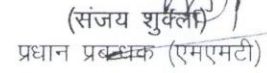 (संजय शुक्ला)
प्रधान प्रबन्धक (एमएमटी)